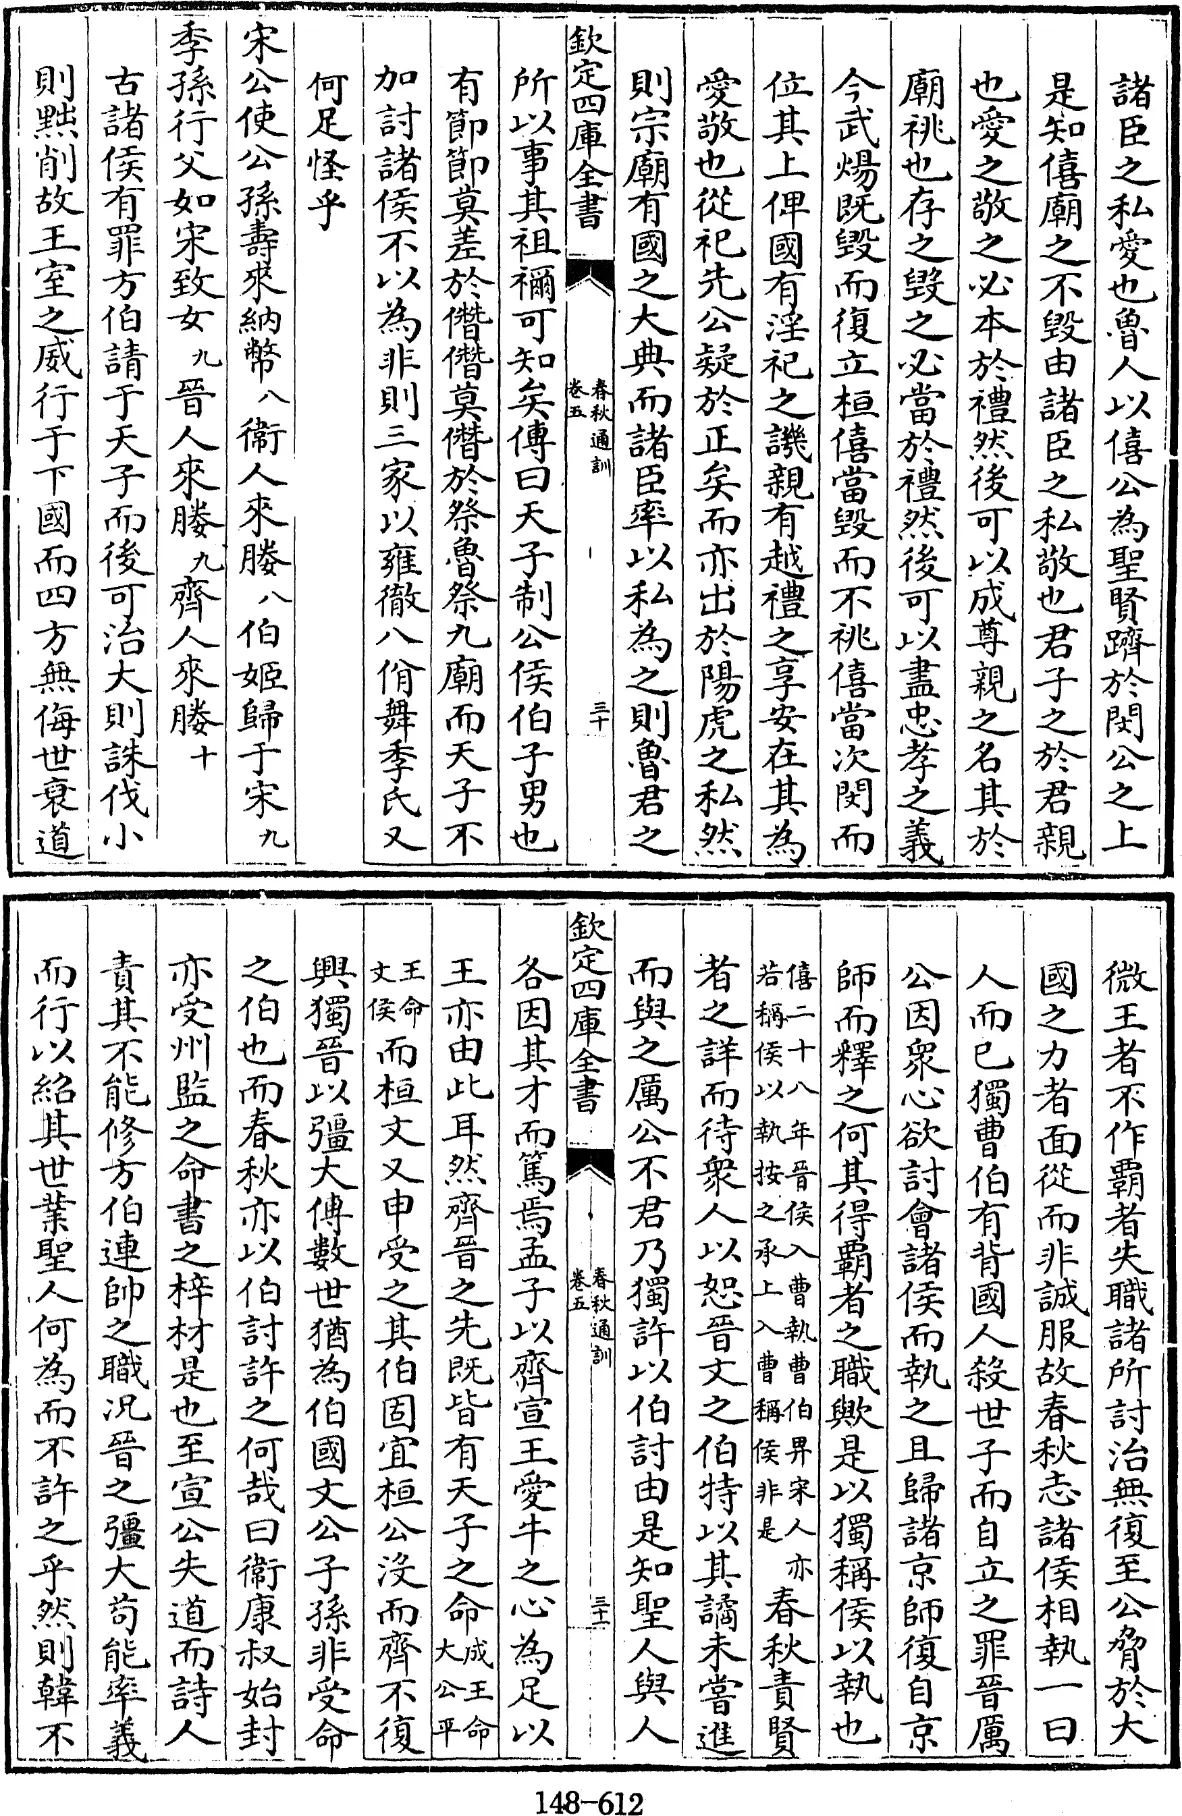 諸臣之私愛也魯人以僖公為聖賢躋於閔公之上
是知僖廟之不毀由諸臣之私敬也君子之於君親
也愛之敬之必本於禮然後可以成尊親之名其於
廟祧也存之毀之必當於禮然後可以盡忠孝之義
今武煬既毀而復立桓僖當毀而不祧僖當次閔而
位其上俾國有淫祀之譏親有越禮之享安在其為
愛敬也從祀先公疑於正矣而亦出於陽虎之私然
則宗廟有國之大典而諸臣率以私為之則魯君之
欽定四庫全書
春秋通訓
卷五
三十
所以事其祖禰可知矣傳曰天子制公侯伯子男也
有節節莫差於僭僭莫僭於祭魯祭九廟而天子不
加討諸侯不以為非則三家以雍徹八佾舞季氏又
何足怪乎
宋公使公孫壽來納幣八衞人來媵八伯姬歸于宋九
季孫行父如宋致女九晉人來媵九齊人來媵十
古諸侯有罪方伯請于天子而後可治大則誅伐小
則黜削故王室之威行于下國而四方無侮世衰道
微王者不作覇者失職諸所討治無復至公脅於大
國之力者面從而非誠服故春秋志諸侯相執一曰
人而已獨曹伯有背國人殺世子而自立之罪晉厲
公因衆心欲討會諸侯而執之且歸諸京師復自京
師而釋之何其得覇者之職歟是以獨稱侯以執也
僖二十八年晉侯入曹執曹伯畀宋人亦
若稱侯以執按之承上入曹稱侯非是
春秋責賢
者之詳而待衆人以恕晉文之伯特以其譎未嘗進
而與之厲公不君乃獨許以伯討由是知聖人與人
欽定四庫全書
春秋通訓
卷五
三十一
各因其才而篤焉孟子以齊宣王愛牛之心為足以
王亦由此耳然齊晉之先既皆有天子之命成王命
大公平
王命
文侯
而桓文又申受之其伯固宜桓公沒而齊不復
興獨晉以彊大傳數世猶為伯國文公子孫非受命
之伯也而春秋亦以伯討許之何哉曰衞康叔始封
亦受州監之命書之梓材是也至宣公失道而詩人
責其不能修方伯連帥之職况晉之彊大苟能率義
而行以紹其世業聖人何為而不許之乎然則韓不
148-612